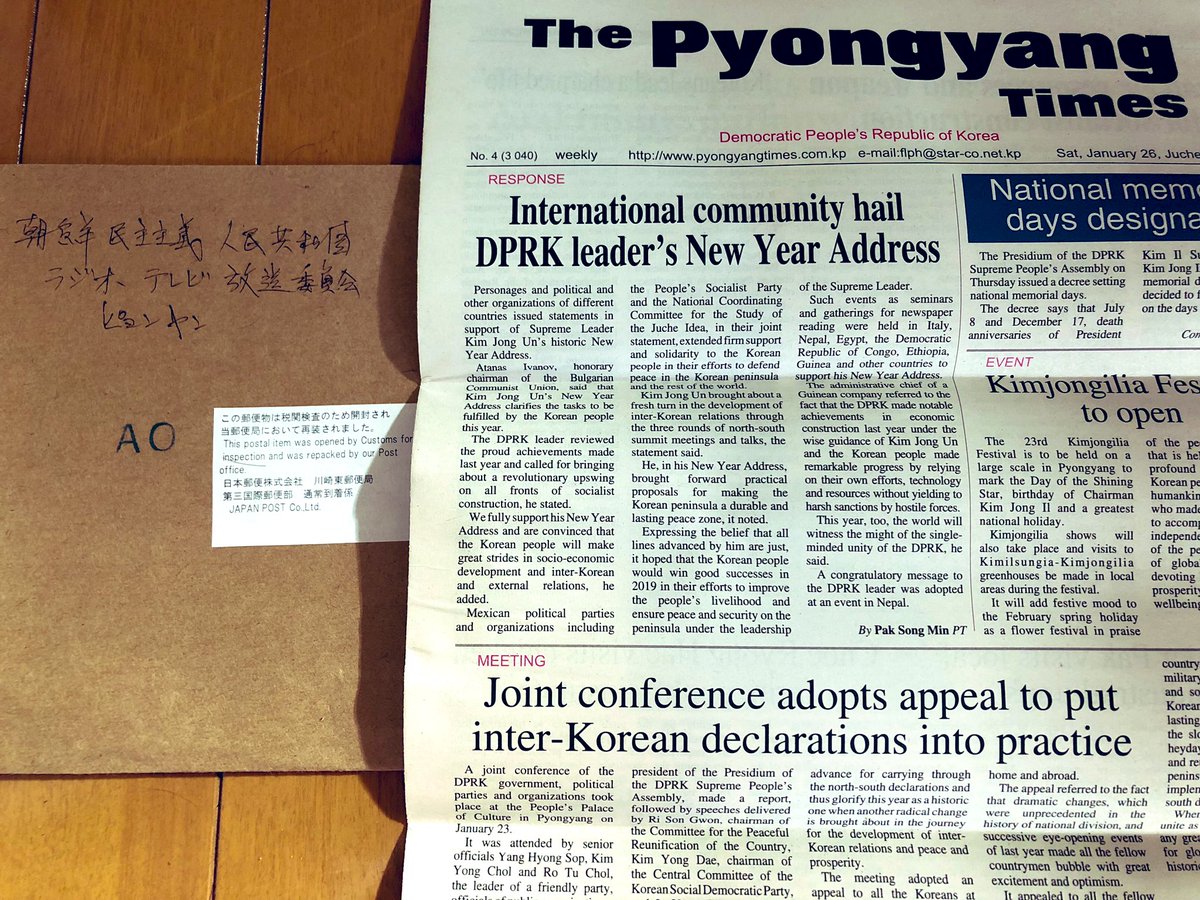 朝鮮民主主義 人民共和国
ラジオ テレビ 放送委員会
ピョンヤン
AO
この郵便物は税関検査のため開封され
当郵便局において再装されました。
This postal item was opened by Customs for
inspection and was repacked by our Post
office.
日本郵便株式会社 川崎東郵便局
第三国際郵便部 通常到着係
JAPAN POST Co.,Ltd.
The Pyongyang
Times
Democratic People's Republic of Korea
No. 4 (3 040) weekly http://www.pyongyangtimes.com.kp e-mail:flph@star-co.net.kp Sat, January 26, Juche
RESPONSE
International community hail
DPRK leader's New Year Address
Personages and political and
other organizations of different
countries issued statements in
support of Supreme Leader
Kim Jong Un's historic New
Year Address.
Atanas Ivanov, honorary
chairman of the Bulgarian
Communist Union, said that
Kim Jong Un's New Year
Address clarifies the tasks to be
fulfilled by the Korean people
this year.
The DPRK leader reviewed
the proud achievements made
last year and called for bringing
about a revolutionary upswing
on all fronts of socialist
construction, he stated.
We fully support his New Year
Address and are convinced that
the Korean people will make
great strides in socio-economic
development and inter-Korean
and external relations, he
added.
Mexican political parties
and organizations including
the People's Socialist Party
and the National Coordinating
Committee for the Study of
the Juche Idea, in their joint
statement, extended firm support
and solidarity to the Korean
people in their efforts to defend
peace in the Korean peninsula
and the rest of the world.
Kim Jong Un brought about a
fresh turn in the development of
inter-Korean relations through
the three rounds of north-south
summit meetings and talks, the
statement said.
He, in his New Year Address,
brought forward practical
proposals for making the
Korean peninsula a durable and
lasting peace zone, it noted.
Expressing the belief that all
lines advanced by him are just,
it hoped that the Korean people
would win good successes in
2019 in their efforts to improve
the people's livelihood and
ensure peace and security on the
peninsula under the leadership
of the Supreme Leader.
Such events as seminars
and gatherings for newspaper
reading were held in Italy,
Nepal, Egypt, the Democratic
Republic of Congo, Ethiopia,
Guinea and other countries to
support his New Year Address.
The administrative chief of a
Guinean company referred to the
fact that the DPRK made notable
achievements in economic
construction last year under the
wise guidance of Kim Jong Un
and the Korean people made
remarkable progress by relying
on their own efforts, technology
and resources without yielding to
harsh sanctions by hostile forces.
This year, too, the world will
witness the might of the single-
minded unity of the DPRK, he
said.
A congratulatory message to
the DPRK leader was adopted
at an event in Nepal.
By Pak Song Min PT
National mem
days designa
The Presidium of the DPRK
Supreme People's Assembly on
Thursday issued a decree setting
national memorial days.
The decree says that July
8 and December 17, death
anniversaries of President
Kim Il Su
Kim Jong I
memorial d
decided to f
on the days
EVENT
Kimjongilia Fes
to open
The 23rd Kimjongilia
Festival is to be held on a
large scale in Pyongyang to
mark the Day of the Shining
Star, birthday of Chairman
Kim Jong Il and a greatest
national holiday.
Kimjongilia shows will
also take place and visits to
Kimilsungia-Kimjongilia
greenhouses be made in local
areas during the festival.
It will add festive mood to
the February spring holiday
as a flower festival in praise
of the pe
that is hel
profound
Korean pe
humankin
who made
to accomp
independe
of the pe
of global
devoting
prosperity
wellbeing
MEETING
Joint conference adopts appeal to put
inter-Korean declarations into practice
A joint conference of the
DPRK government, political
parties and organizations took
place at the People's Palace
of Culture in Pyongyang on
January 23.
It was attended by senior
officials Yang Hyong Sop, Kim
Yong Chol and Ro Tu Chol,
the leader of a friendly party,
president of the Presidium of
the DPRK Supreme People's
Assembly, made a report,
followed by speeches delivered
by Ri Son Gwon, chairman of
the Committee for the Peaceful
Reunification of the Country,
Kim Yong Dae, chairman of
the Central Committee of the
Korean Social Democratic Party,
advance for carrying through
the north-south declarations and
thus glorify this year as a historic
one when another radical change
is brought about in the journey
for the development of inter-
Korean relations and peace and
prosperity.
The meeting adopted an
appeal to all the Koreans at
home and abroad.
The appeal referred to the fact
that dramatic changes, which
were unprecedented in the
history of national division, and
successive eye-opening events
of last year made all the fellow
countrymen bubble with great
excitement and optimism.
It appealed to all the fellow
country
military
and so
Korean
lasting
the slo
heyday
and re
penins
implem
south d
Whe
unite as
any grea
for glo
historic